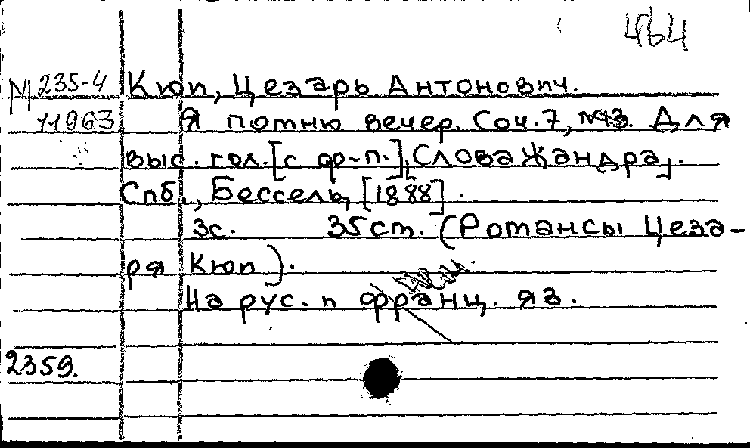 464
М 235-4 Кюи, Цезарь Антонович.
11963 Я помню вечер. Соч. 7, №3. Для
выс. гол. [с ф-п.], [Слова Жандра].
Спб., Бессель, [1888].
3с. 35ст. (Романсы Цеза-
ря Кюи).
На рус. и франц. яз.
2359.